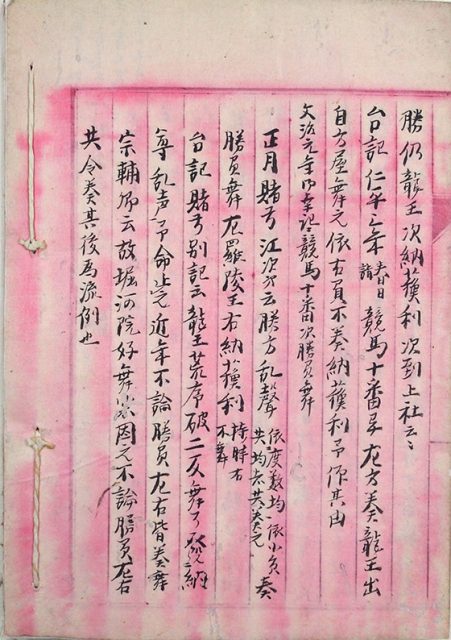 勝仍龍王次納蘇利次到上社云々
台記仁平三年春日詣競馬十番畢左方奏龍王出
自方屋舞之依右負不奏納蘇利予作其由
文治元年御幸記競馬十番次勝負舞
正月賭弓江次第云勝方乱聲依度数均依小負奏
勝負舞左羅陵王右納蘇利持時右不舞
台記賭弓別記云龍王荒序破二反舞了納
尊乱声予命止之近年不論勝負左右皆奏舞
宗輔卿云故堀河院好舞給因之不論勝負左右
共令奏其後為流例也